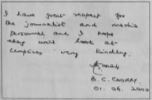 I have great respect for
the journalist and media
personnel and I hope
they will look at
very kindly.
B. C.
01. 06. 2009